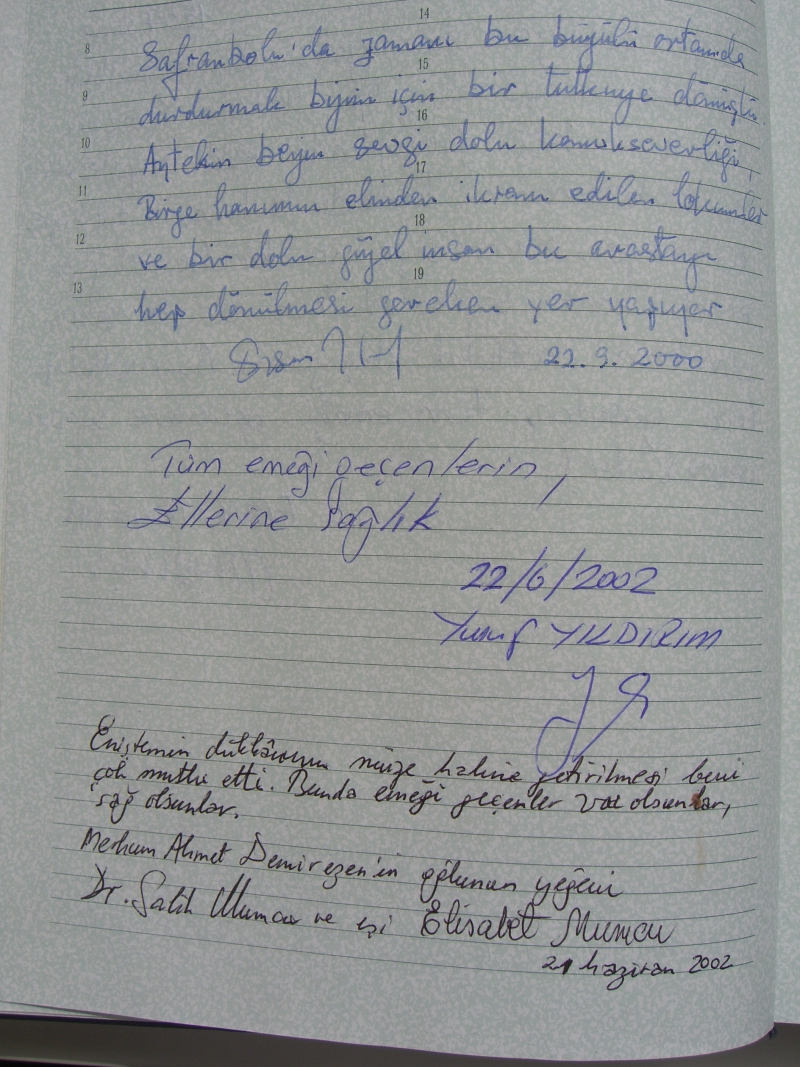 14
8 Safranbolu'da zamanı bu büyülü ortamda
15
9 durdurmak bizim için bir tutkuya dönüştü.
16
10 Aytekin beyin sevgi dolu konukseverliği,
17
11 Birge hanımın elinden ikram edilen lokumlar
18
12 ve bir dolu güzel insan bu arastayı
19
13 hep dönülmesi gereken yer yapıyor
22.9.2000
Tüm emeği geçenlerin,
Ellerine Sağlık
22/6/2002
Yusuf YILDIRIM
Eniştemin dükkânının müze haline getirilmesi beni
çok mutlu etti. Bunda emeği geçenler var olsunlar,
sağ olsunlar.
Merhum Ahmet Demirezen'in oğlunun yeğeni
Dr. Salih Mumcu ve eşi Elisabet Mumcu
21 haziran 2002